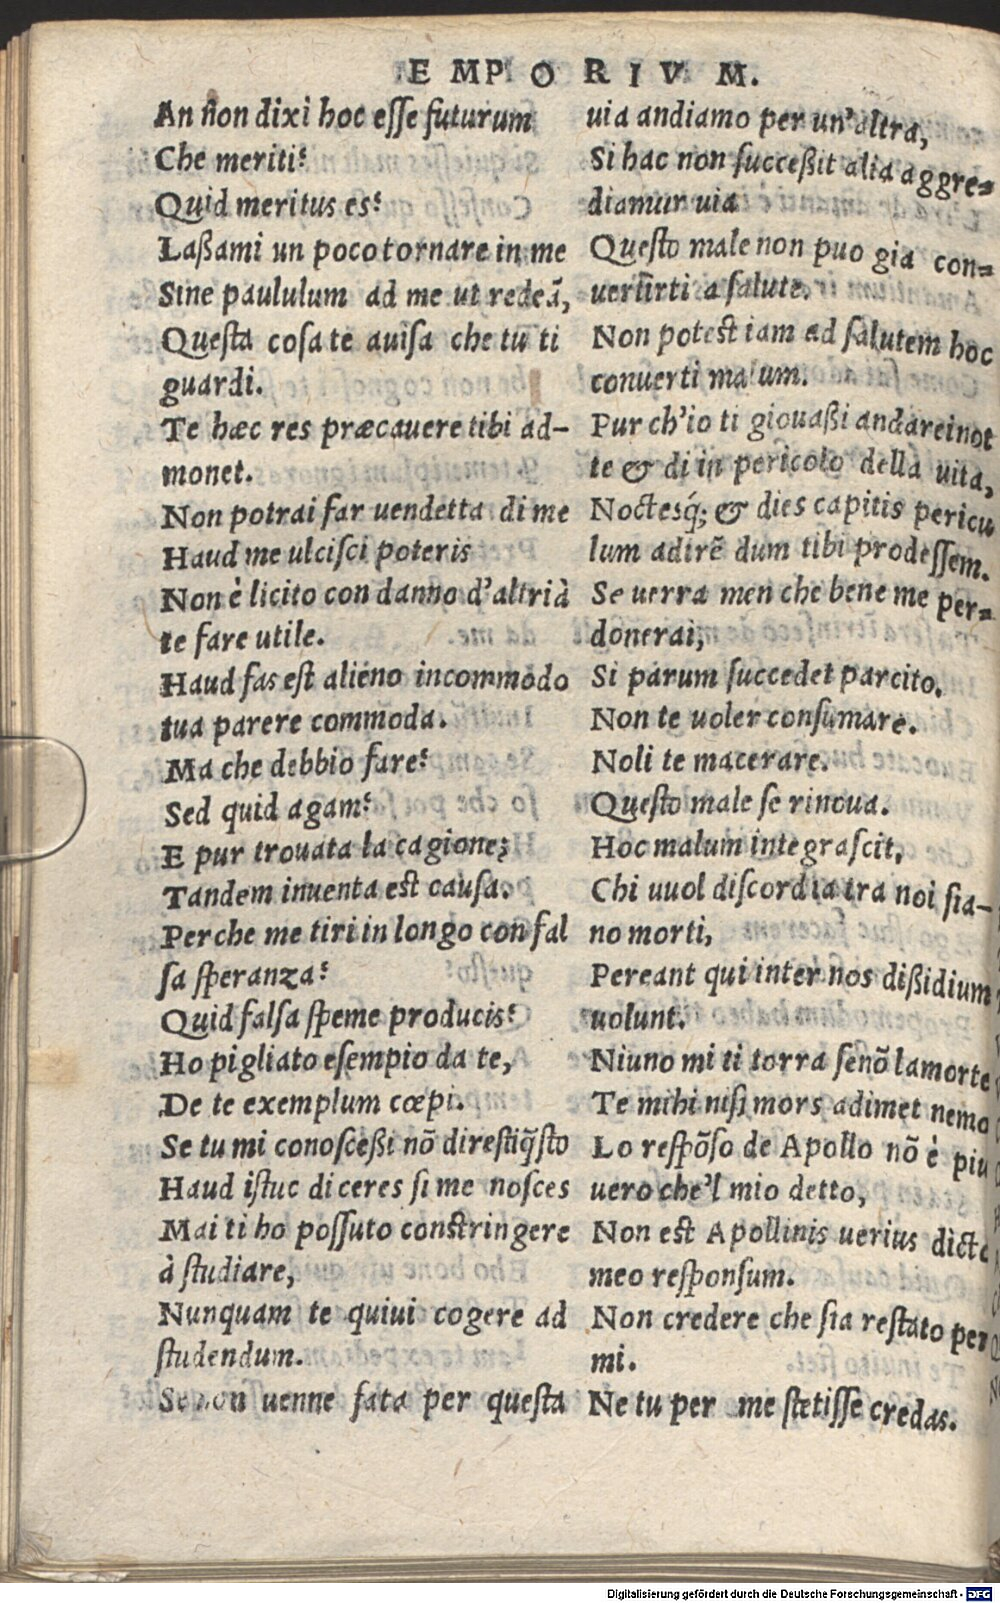 EMPORIVM.
An non dixi hoc eſſe futurum
Che meriti?
Quid meritus es?
Laßami un poco tornare in me
Sine paululum ad me ut redeã,
Queſta coſa te auiſa che tu ti
guardi.
Te hæc res præcauere tibi ad-
monet.
Non potrai far uendetta di me
Haud me ulciſci poteris
Non è licito con danno d'altrià
te fare utile.
Haud fas eſt alieno incommodo
tua parere commoda.
Ma che debbio fare?
Sed quid agam?
E pur trouata la cagione;
Tandem inuenta est cauſa.
Perche me tiri in longo con fal
ſa ſperanza?
Quid falſa ſpeme producis?
Ho pigliato eſempio da te,
De te exemplum cœpi.
Se tu mi conoſceßi nõ direſti q̃ſto
Haud iſtuc diceres ſi me noſces
Mai ti ho poſſuto constringere
à ſtudiare,
Nunquam te quiui cogere ad
ſtudendum.
Se non uenne fata per queſta
uia andiamo per un'altra,
Si hac non ſucceßit alia aggre=
diamur uia
Queſto male non puo gia con=
uertirti a ſalute.
Non potest iam ad ſalutem hoc
conuerti malum.
Pur ch'io ti giouaßi andarei not
te & di in pericolo della uita,
Noctesq́; & dies capitis pericu
lum adirẽ dum tibi prodeſſem.
Se uerra men che bene me per=
donerai,
Si parum ſuccedet parcito.
Non te uoler conſumare.
Noli te macerare.
Queſto male ſe rinoua.
Hoc malum integraſcit,
Chi uuol diſcordia tra noi ſia-
no morti,
Pereant qui inter nos dißidium
uolunt.
Niuno mi ti torra ſenõ la morte
Te mihi niſi mors adimet nemo
Lo reſpõſo de Apollo nõ è piu
uero che'l mio detto,
Non est Apollinis uerius dicto
meo reſponſum.
Non credere che ſia reſtato per
mi.
Ne tu per me ſtetiſſe credas.
Digitalisierung gefördert durch die Deutsche Forschungsgemeinschaft - DFG